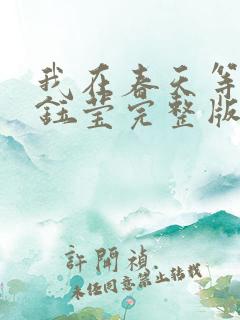 我在春天等
钰莹完整版
許開禎
未经同意禁止转载